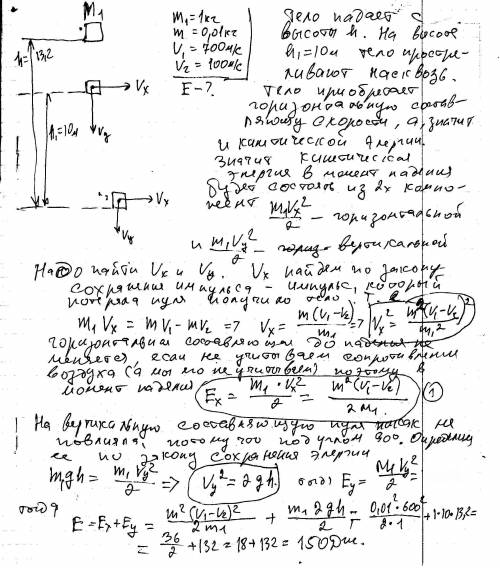 M₁
h = 13,2
h₁=10м
Vx
Vy
Vx
Vy
m₁=1кг
m = 0,01кг
V₁ = 700м/с
V₂ = 100м/с
E-?
Тело падает с
высоты h. На высоте
h₁=10м тело простре-
ливают насквозь.
Тело приобретает
горизонтальную состав-
ляющую скорости, а, значит
и кинетической энергии.
Значит кинетическая
энергия в момент падения
будет состоять из 2х компо-
нент m₁Vx²/2 - горизонтальной
и m₁Vy²/2 - вертикальной
Надо найти Vx и Vy. Vx найдем по закону
сохранения импульса - импульс, который
потеряла пуля получило тело. Т.е.
m₁Vx = mV₁-mV₂ => Vx = m(V₁-V₂)/m₁ => Vx² = m²(V₁-V₂)²/m₁²
горизонтальная составляющая до падения не
меняется, если не учитываем сопротивление
воздуха (а мы его не учитываем) поэтому в
момент падения Ex = m₁·Vx²/2 = m²(V₁-V₂)²/2m₁ (1)
На вертикальную составляющую пуля никак не
повлияла, потому что под углом 90°. Определим
ее по закону сохранения энергии
m₁gh = m₁Vy²/2 => Vy² = 2gh. тогда Ey = M₁Vy²/2 =
тогда
E = Ex+Ey = m²(V₁-V₂)²/2m₁ + m₁2gh/2 = 0,01²·600²/2·1 + 1·10·13,2 =
= 36/2 + 132 = 18 + 132 = 150Дж.